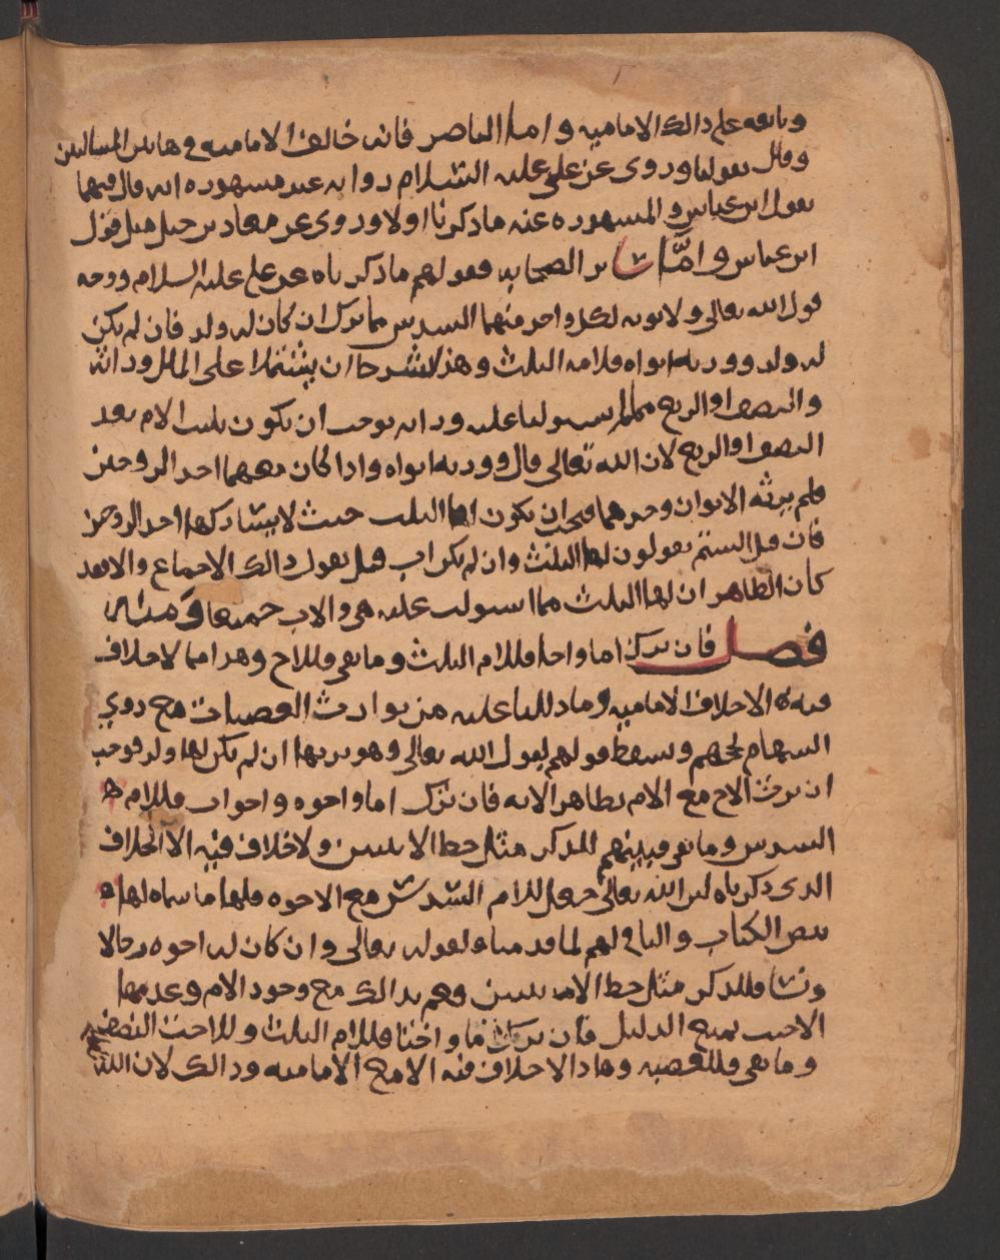 وتابعه على ذالك الامامية واما الناصر فانه خالف الامامية في هاتين المسالتين
وقال بقولنا وروى عن علي عليه السلام رواية غير مشهوره انه قال فيهما
بقول ابن عباس والمشهوره عنه ماذكرنا اولا وروى عن معاذ بن جبل مثل قول
ابن عباس واما ساير الصحابه فقولهم ماذكرناه عن علي عليه السلام ووجه
قول الله تعالى ولابويه لكل واحد منهما السدس مما ترك ان كان له ولد فان لم يكن
له ولد وورثه ابواه فلامه الثلث وهذا ان يشتملا على المال وذالك
والنصف او الربع عليه وذالك يوجب ان يكون ثلث الام بعد
النصف او الربع لان الله تعالى قال وورثه ابواه واذا كان معهما احد الزوجين
فلم يرثه الابوان وحدهما فيجب ان يكون لها الثلث حيث لا يشاركها احد الزوجين
فان قيل الستم تقولون لها الثلث وان لم يكن اب قيل نقول ذالك الاجماع والا فقد
كان الظاهر ان لها الثلث مما استولت عليه هي والاب جميعا
فصل فان ترك اما واخا فللام الثلث وما بقي فللاخ وهذا مما لا خلاف
فيه الا خلاف الامامية وما دللنا عليه من توارث العصبات مع ذوي
السهام يحجهم ويسقط قولهم لقول الله تعالى وهو يرثها ان لم يكن لها ولد فوجب
ان يرث الاخ مع الام بظاهر الايه فان ترك اما واخوه واخوات فللام
السدس وما بقي فبينهم للذكر مثل حظ الانثيين ولا خلاف فيه الا الخلاف
الذي ذكرناه لان الله تعالى جعل للام السدس مع الاخوه فلها ما سماه لها
بنص الكتاب والباقي لهم لما قدمناه ولقوله تعالى وان كان له اخوه رجالا
ونسا فللذكر مثل حظ الانثيين وعم بذالك مع وجود الام وعدمها
الا حيث يمنع الدليل فان ترك اما واختا فللام الثلث وللاخت النصف
وما بقي فللعصبه وهاذا لا خلاف فيه الا مع الامامية وذالك لان الله